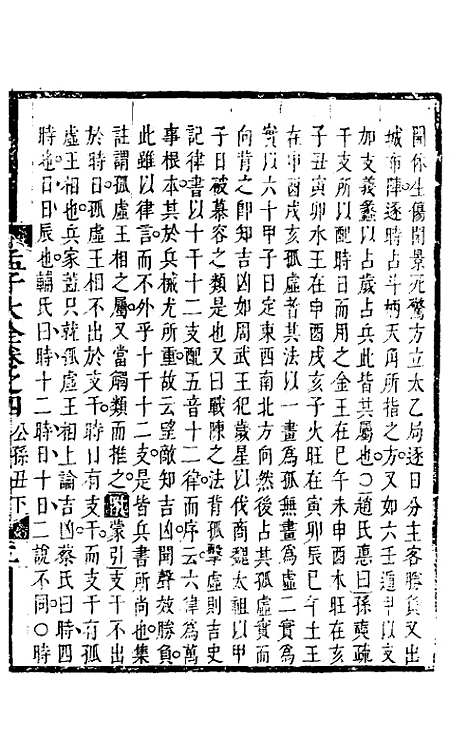 開休生傷闌景死驚方立太乙局逐日分主客勝負又出
城布陣逐時占斗炳天角所指之方又如六壬遁甲以支
加支義蠡以占歲占兵皆其屬也○趙氏惪曰孫奭疏
干支所以配時日而用之金王在巳午未申酉木旺在亥
子丑寅卯水王在申酉戌亥子火旺在寅卯辰巳午土王
在申酉戌亥孤虛者其法以一畫為孤無畫為虛二實為
實以六十甲子日定東西南北四方向然後占其孤虛實而
向背之即知吉凶如周武王犯歲星以伐商魏太祖以甲
子日破慕容之類是也又曰戰陳之法背孤擊虛則吉史
記律書以十干十二支配五音十二律而序云六律為萬
事根本其於兵械尤所重故云望敵知吉凶聞聲效勝負
此雖以律言而不外乎十干十二支是皆兵書所尚也集
註謂孤虛王相之屬又當觸類而推之蒙引支干不出
於時日孤虛王相不出於支干時日有支干而支干有孤
虛王相也兵家蓋只就孤虛王相上論吉凶蔡氏曰時四
時也日日辰也輔氏曰時十二時日十日二說不同○時
孟子大全卷之四 公孫丑下